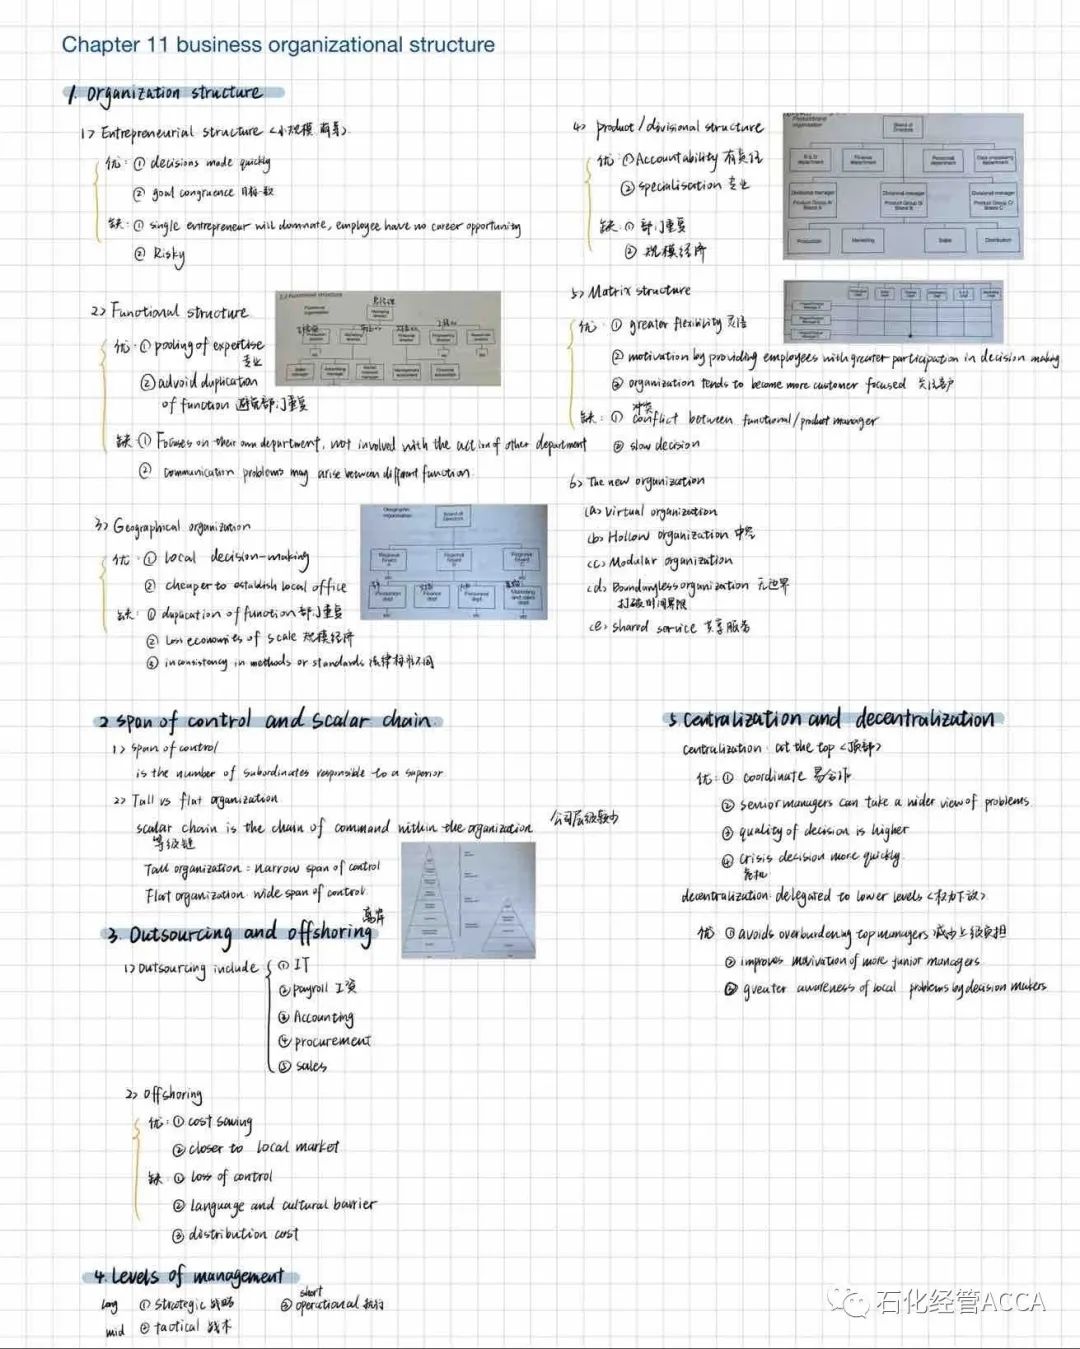 Chapter 11 business organizational structure
1. Organization structure
1> Entrepreneurial structure <小规模
优: ① decisions made quickly
② goal congruence 目标一致
缺: ① single entrepreneur will domnate, employee have no career opportunity
② Risky
2> Functional structure
优: ① pooling of expertise
专业
② advoid duplication
of function 避免部门重复
缺 ① Focuses on their own department, not involved with the action of other department
② communication problems may arise between different function.
3> Geographical organization
优: ① local decision-making
② cheaper to establish local office
缺: ① duplication of function 部门重复
② loss economies of scale 规模经济
③ inconsistency in methods or standards 法律标准不同
4> product/divisional structure
优: ① Accountability 有责任
② specialisation 专业
缺: ① 部门重复
② 规模经济
Board of
Directors
R & D
department
Finance
department
Personnel
department
Data processing
department
Divisional manager
Product Group A/
Brand A
Divisional manager
Product Group B/
Brand B
Divisional manager
Product Group C/
Brand C
Production
Marketing
Sales
Distribution
5> Matrix structure
优: ① greater flexibility 灵活
② motivation by providing employees with greater participation in decision making
③ organization tends to become more customer focused 关注客户
冲突
缺: ① conflict between functional/product manager
② slow decision
6> The new organization
<a> Virtual organization
<b> Hollow organization 中空
<c> Modular organization
<d> Boundaryless organization 无边界
打破时间界限
<e> shared service 共享服务
2 Span of control and scalar chain.
1> span of control
is the number of subordinates responsible to a superior
2> Tall vs flat organization
scalar chain is the chain of command within the organization
等级链
公司层级较少
Tall organization: narrow span of control
Flat organization: wide span of control.
离岸
3. Outsourcing and offshoring
1> Outsourcing include
① IT
② payroll 工资
③ Accounting
④ procurement
⑤ sales
2> offshoring
优: ① cost saving
② closer to local market
缺: ① loss of control
② language and cultural barrier
③ distribution cost
4. Levels of management
long ① strategic 战略
short
③ operational 执行
mid ② tactical 战术
5 Centralization and decentralization
centralization: at the top <顶部>
优: ① coordinate 易合作
② senior managers can take a wider view of problems
③ quality of decision is higher
④ crisis decision more quickly.
危机
decentralization: delegated to lower levels <权力下放>
优 ① avoids overburdening top managers 减少上级负担
② improves motivation of more junior managers
③ greater awareness of local problems by decision makers
石化经管ACCA